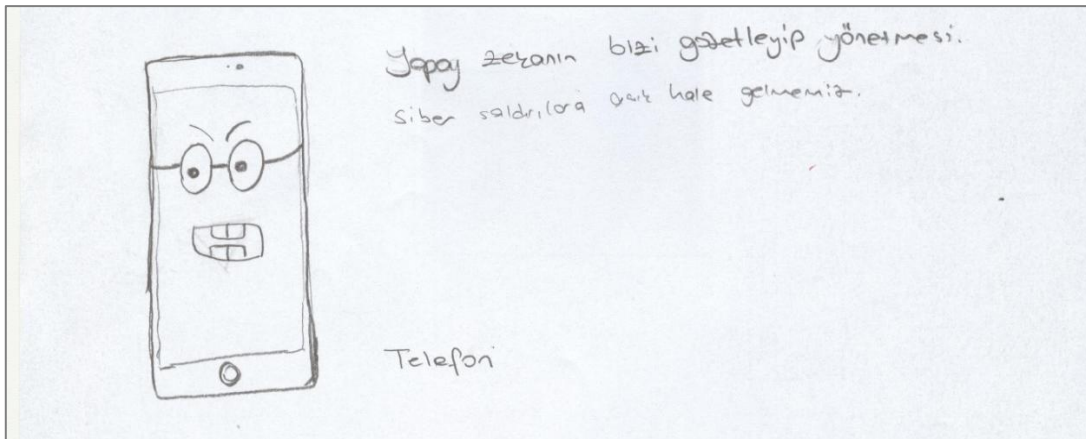 Yapay zekanın bizi gözetleyip yönetmesi.
siber saldırılara açık hale gelmemiz.
Telefon